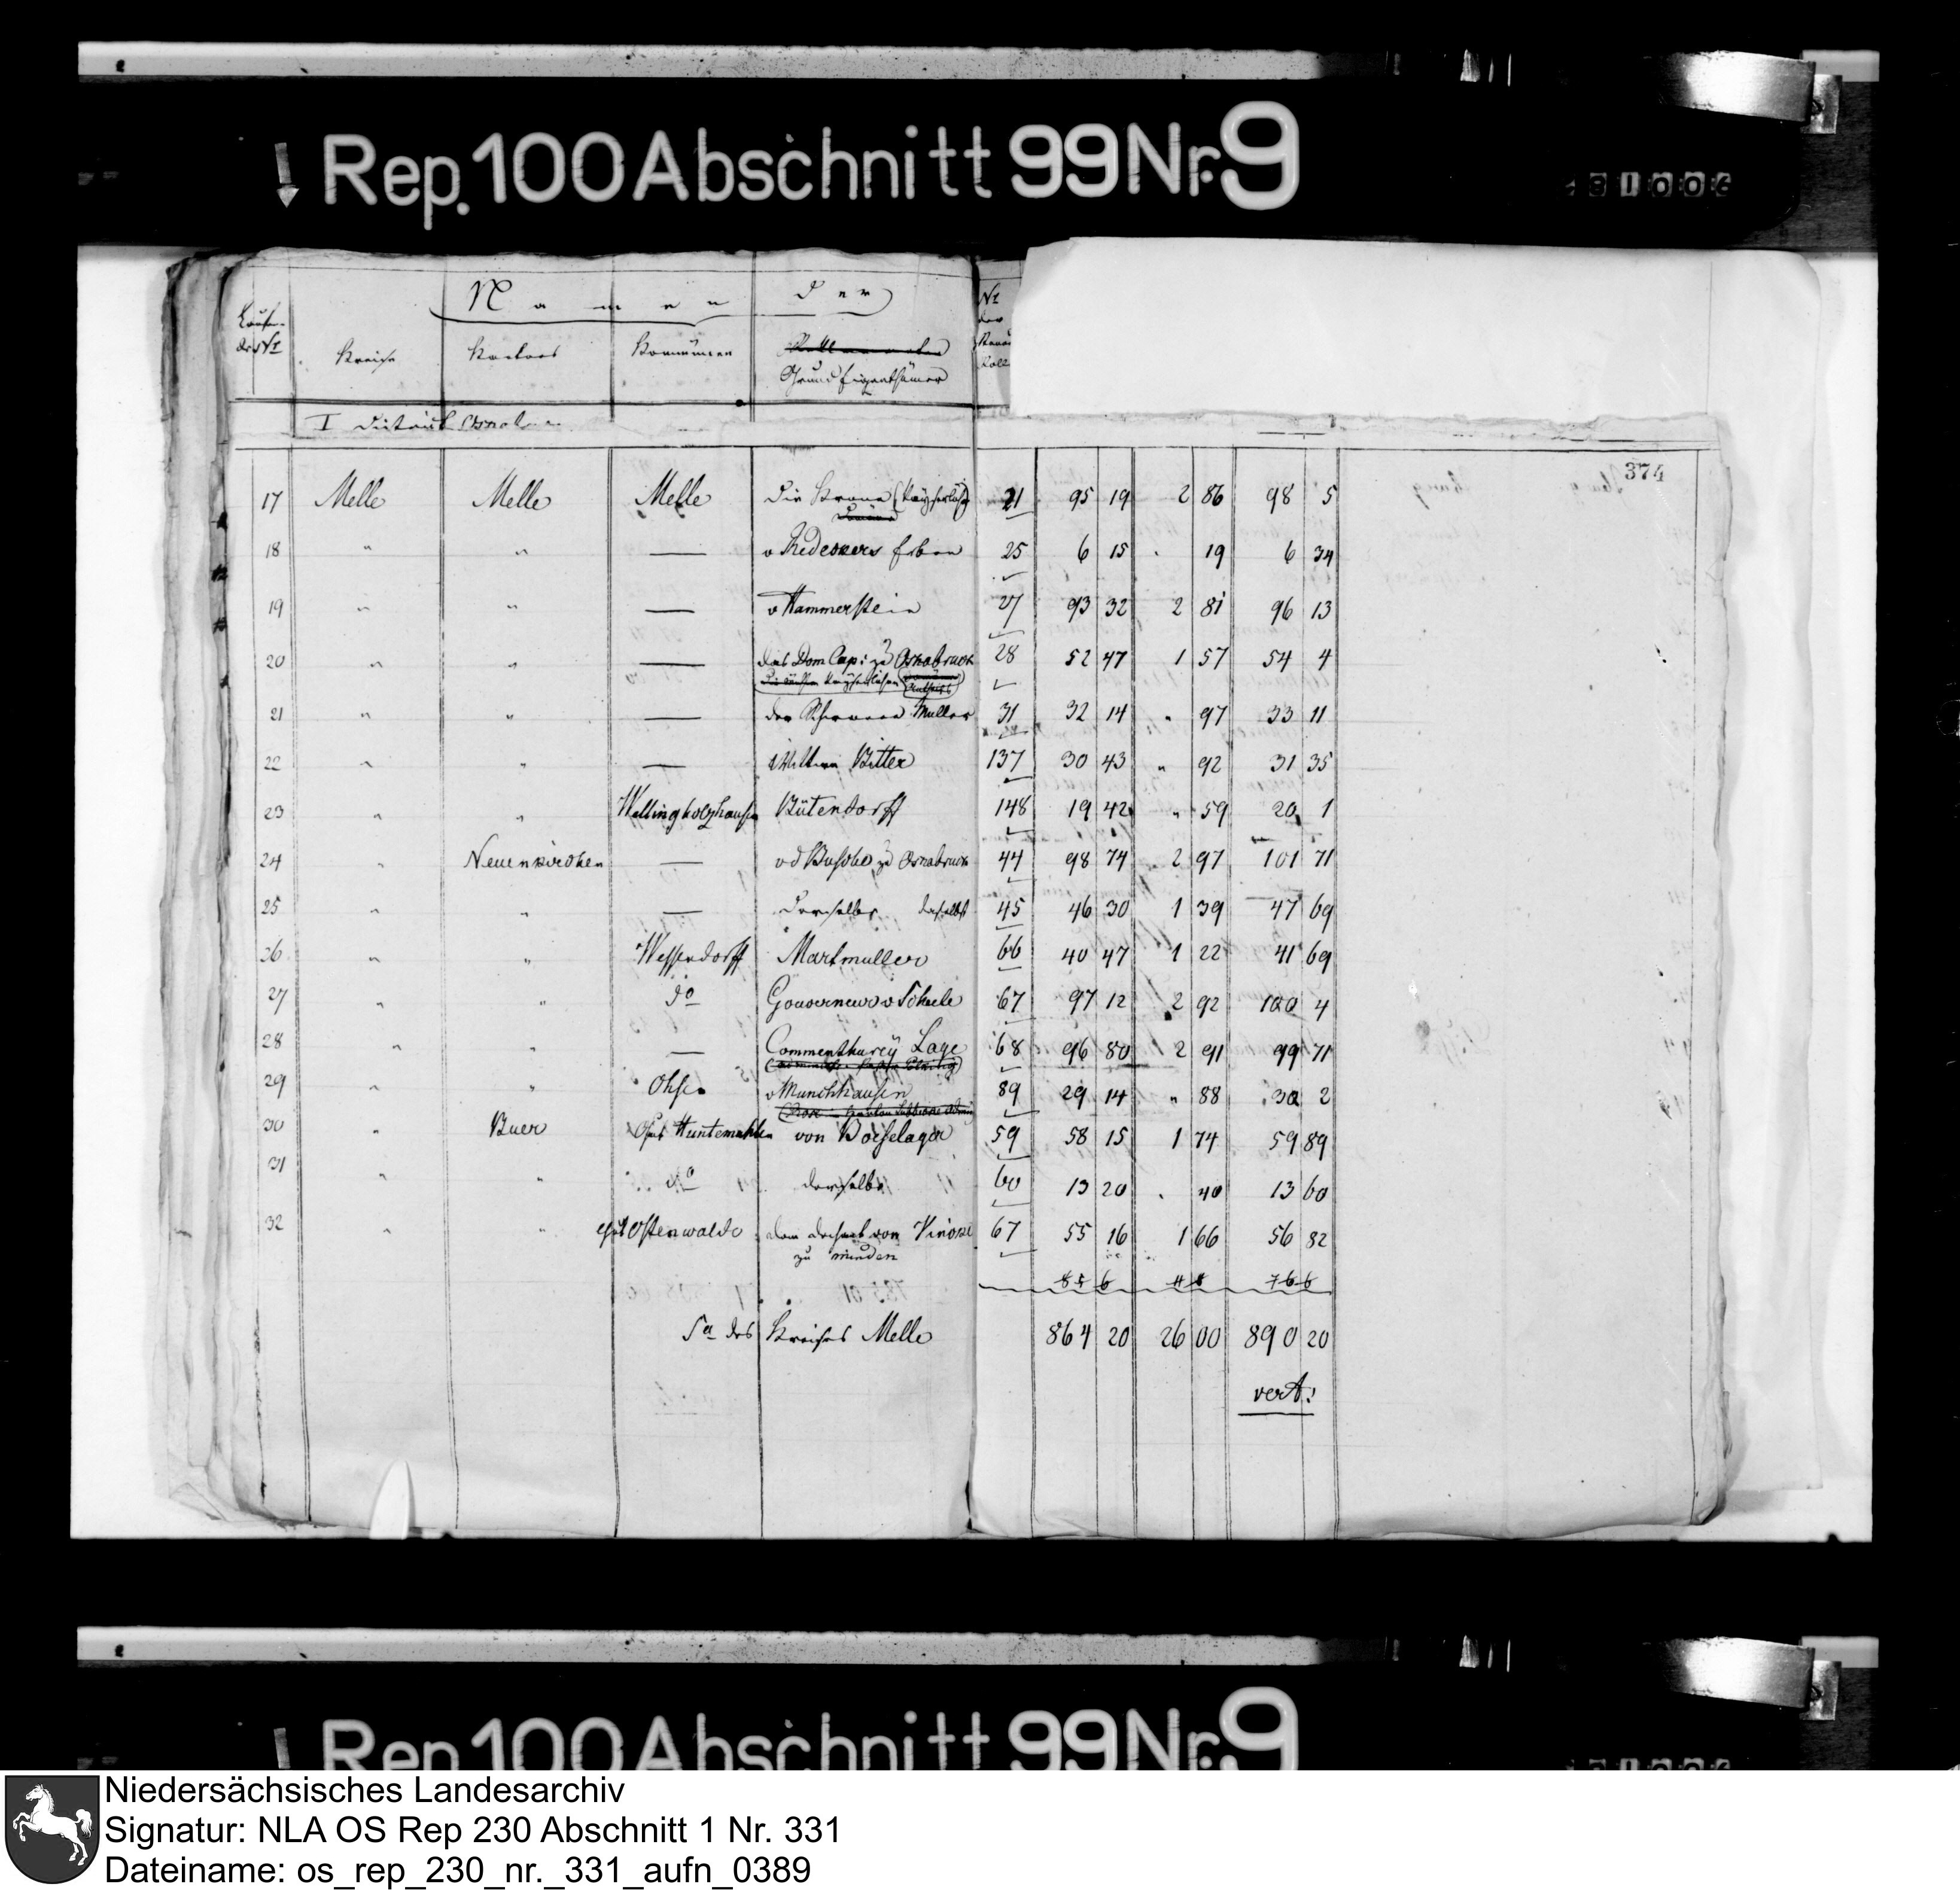 Rep. 100 Abschnitt 99 Nr. 9
Namen der
Laufende Nr
Kreise Kantons Kommunen Grund Eigenthümer
Nr der
I District Osnab
374
17 Melle Melle Melle Die Krone (Kayserliche 21 95 19 2 86 98 5
18 " " — v Redeckers Erben 25 6 15 . 19 6 34
19 " " — v Hammerstein 27 93 32 2 81 96 13
20 " " — das Dom Cap: zu Osnabruck 28 52 47 1 57 54 4
21 " " — der Muller 31 32 14 " 97 33 11
22 " " — Wittwe Bitter 137 30 43 " 92 31 35
23 " " Wellingholzhausen Bütendorff 148 19 42 " 59 20 1
24 " Neuenkirchen — v d Busche zu Osnabruck 44 98 74 2 97 101 71
25 " " — Derselbe daselbst 45 46 30 1 39 47 69
26 " " Wessendorff Martmuller 66 40 47 1 22 41 69
27 " " do Gouverneur v Schele 67 97 12 2 92 100 4
28 " " — Commenthurey Lage 68 96 80 2 91 99 71
29 " " Ohsen v Munchhausen 89 29 14 " 88 30 2
30 " Buer Gut Huntemuhlen von Boeselager 59 58 15 1 74 59 89
31 " " do derselbe 60 13 20 . 40 13 60
32 " " Gut Ostenwalde dem von Vincke 67 55 16 1 66 56 82
zu minden
Sa des Kreises Melle 864 20 26 00 890 20
vert:
Rep. 100 Abschnitt 99 Nr. 9
Niedersächsisches Landesarchiv
Signatur: NLA OS Rep 230 Abschnitt 1 Nr. 331
Dateiname: os_rep_230_nr._331_aufn_0389